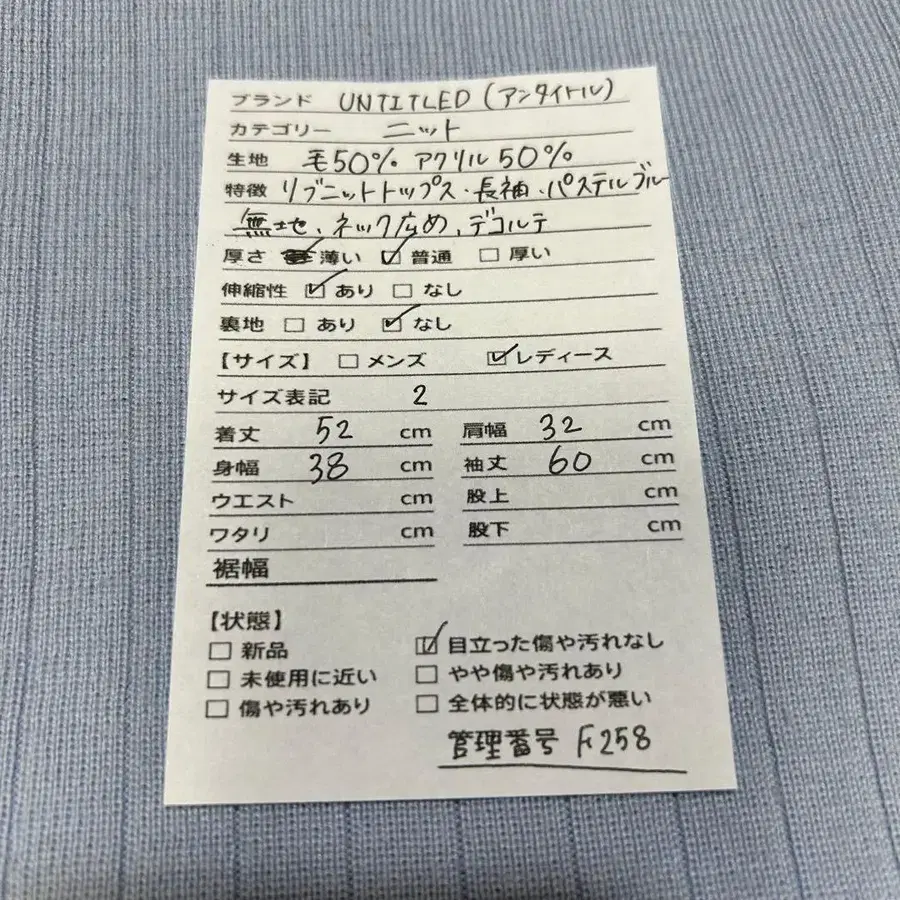 ブランド UNTITLED (アンタイトル)
カテゴリー ニット
生地 毛50% アクリル50%
特徴 リブニットトップス・長袖・パステルブルー
無地、ネック広め、デコルテ
厚さ 薄い ☑ 普通 □ 厚い
伸縮性 ☑ あり □ なし
裏地 □ あり ☑ なし
【サイズ】 □ メンズ ☑ レディース
サイズ表記 2
着丈 52 cm 肩幅 32 cm
身幅 38 cm 袖丈 60 cm
ウエスト cm 股上 cm
ワタリ cm 股下 cm
裾幅
【状態】
□ 新品 ☑ 目立った傷や汚れなし
□ 未使用に近い □ やや傷や汚れあり
□ 傷や汚れあり □ 全体的に状態が悪い
管理番号 F258